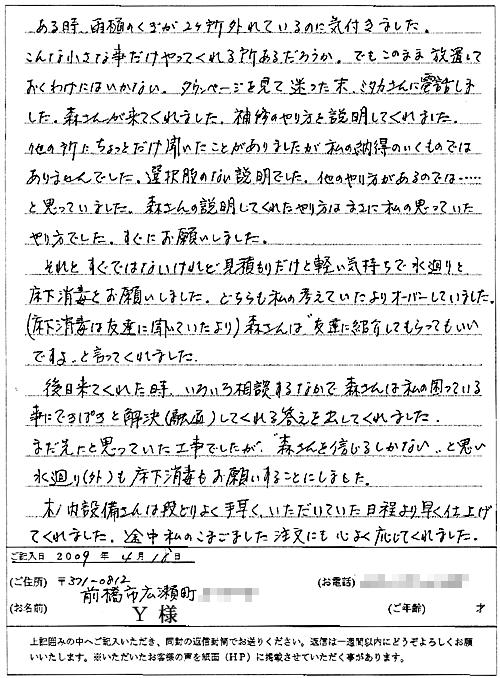 ある時、雨樋のくぎが2ヶ所外れているのに気付きました。
こんな小さな事だけやってくれる所あるだろうか。でもこのまま放置して
おくわけにはいかない。タウンページを見て迷った末、ミタカさんに電話しま
した。森さんが来てくれました。補修のやり方を説明してくれました。
他の所にちょっとだけ聞いたことがありましたが私の納得のいくものでは
ありませんでした。選択肢のない説明でした。他のやり方があるのでは……
と思っていました。森さんの説明してくれたやり方はまさに私の思っていた
やり方でした。すぐにお願いしました。
それとすぐではないけれど見積もりだけと軽い気持ちで水廻りと
床下消毒をお願いしました。どちらも私の考えていたよりオーバーしていました。
(床下消毒は友達に聞いていたより)森さんは"友達に紹介してもらってもいい
ですよ"と言ってくれました。
後日来てくれた時、いろいろ相談するなかで森さんは私の困っている
事にてきぱきと解決(融通)してくれる答えを出してくれました。
まだ先だと思っていた工事でしたが、"森さんを信じるしかない"と思い
水廻り(外)も床下消毒もお願いすることにしました。
木ノ内設備さんは段どりよく手早く、いただいていた日程より早く仕上げ
てくれました。途中私のこまごました注文にも心よく応じてくれました。
ご記入日 2009 年 4月 18日
(ご住所) 〒371-0812 (お電話)
前橋市広瀬町
(お名前) Y 様 (ご年齢) 才
上記囲みの中へご記入いただき、同封の返信封筒でお送りください。返信は一週間以内にどうぞよろしくお願
いいたします。※いただいたお客様の声を紙面(HP)に掲載させていただく事があります。